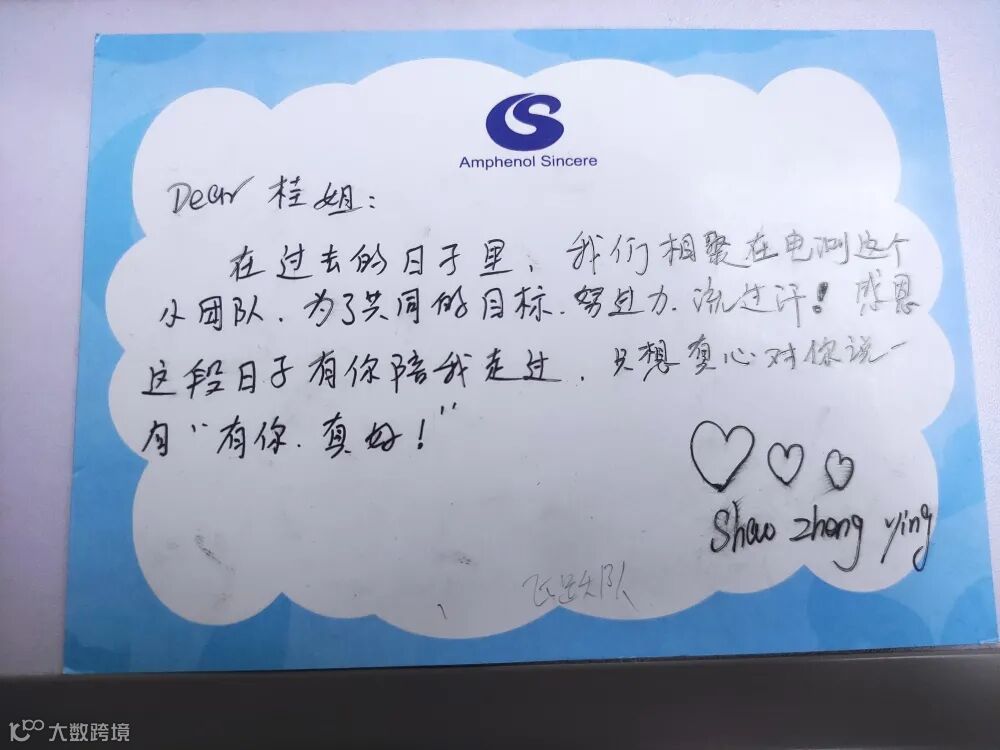 Amphenol Sincere
Dear 桂姐:
在过去的日子里、我们相聚在电测这个
小团队、为了共同的目标、努过力、流过汗！感恩
这段日子有你陪我走过、只想真心对你说一
句“有你、真好！”
Shao zhong ying
飞跃队
大数跨境